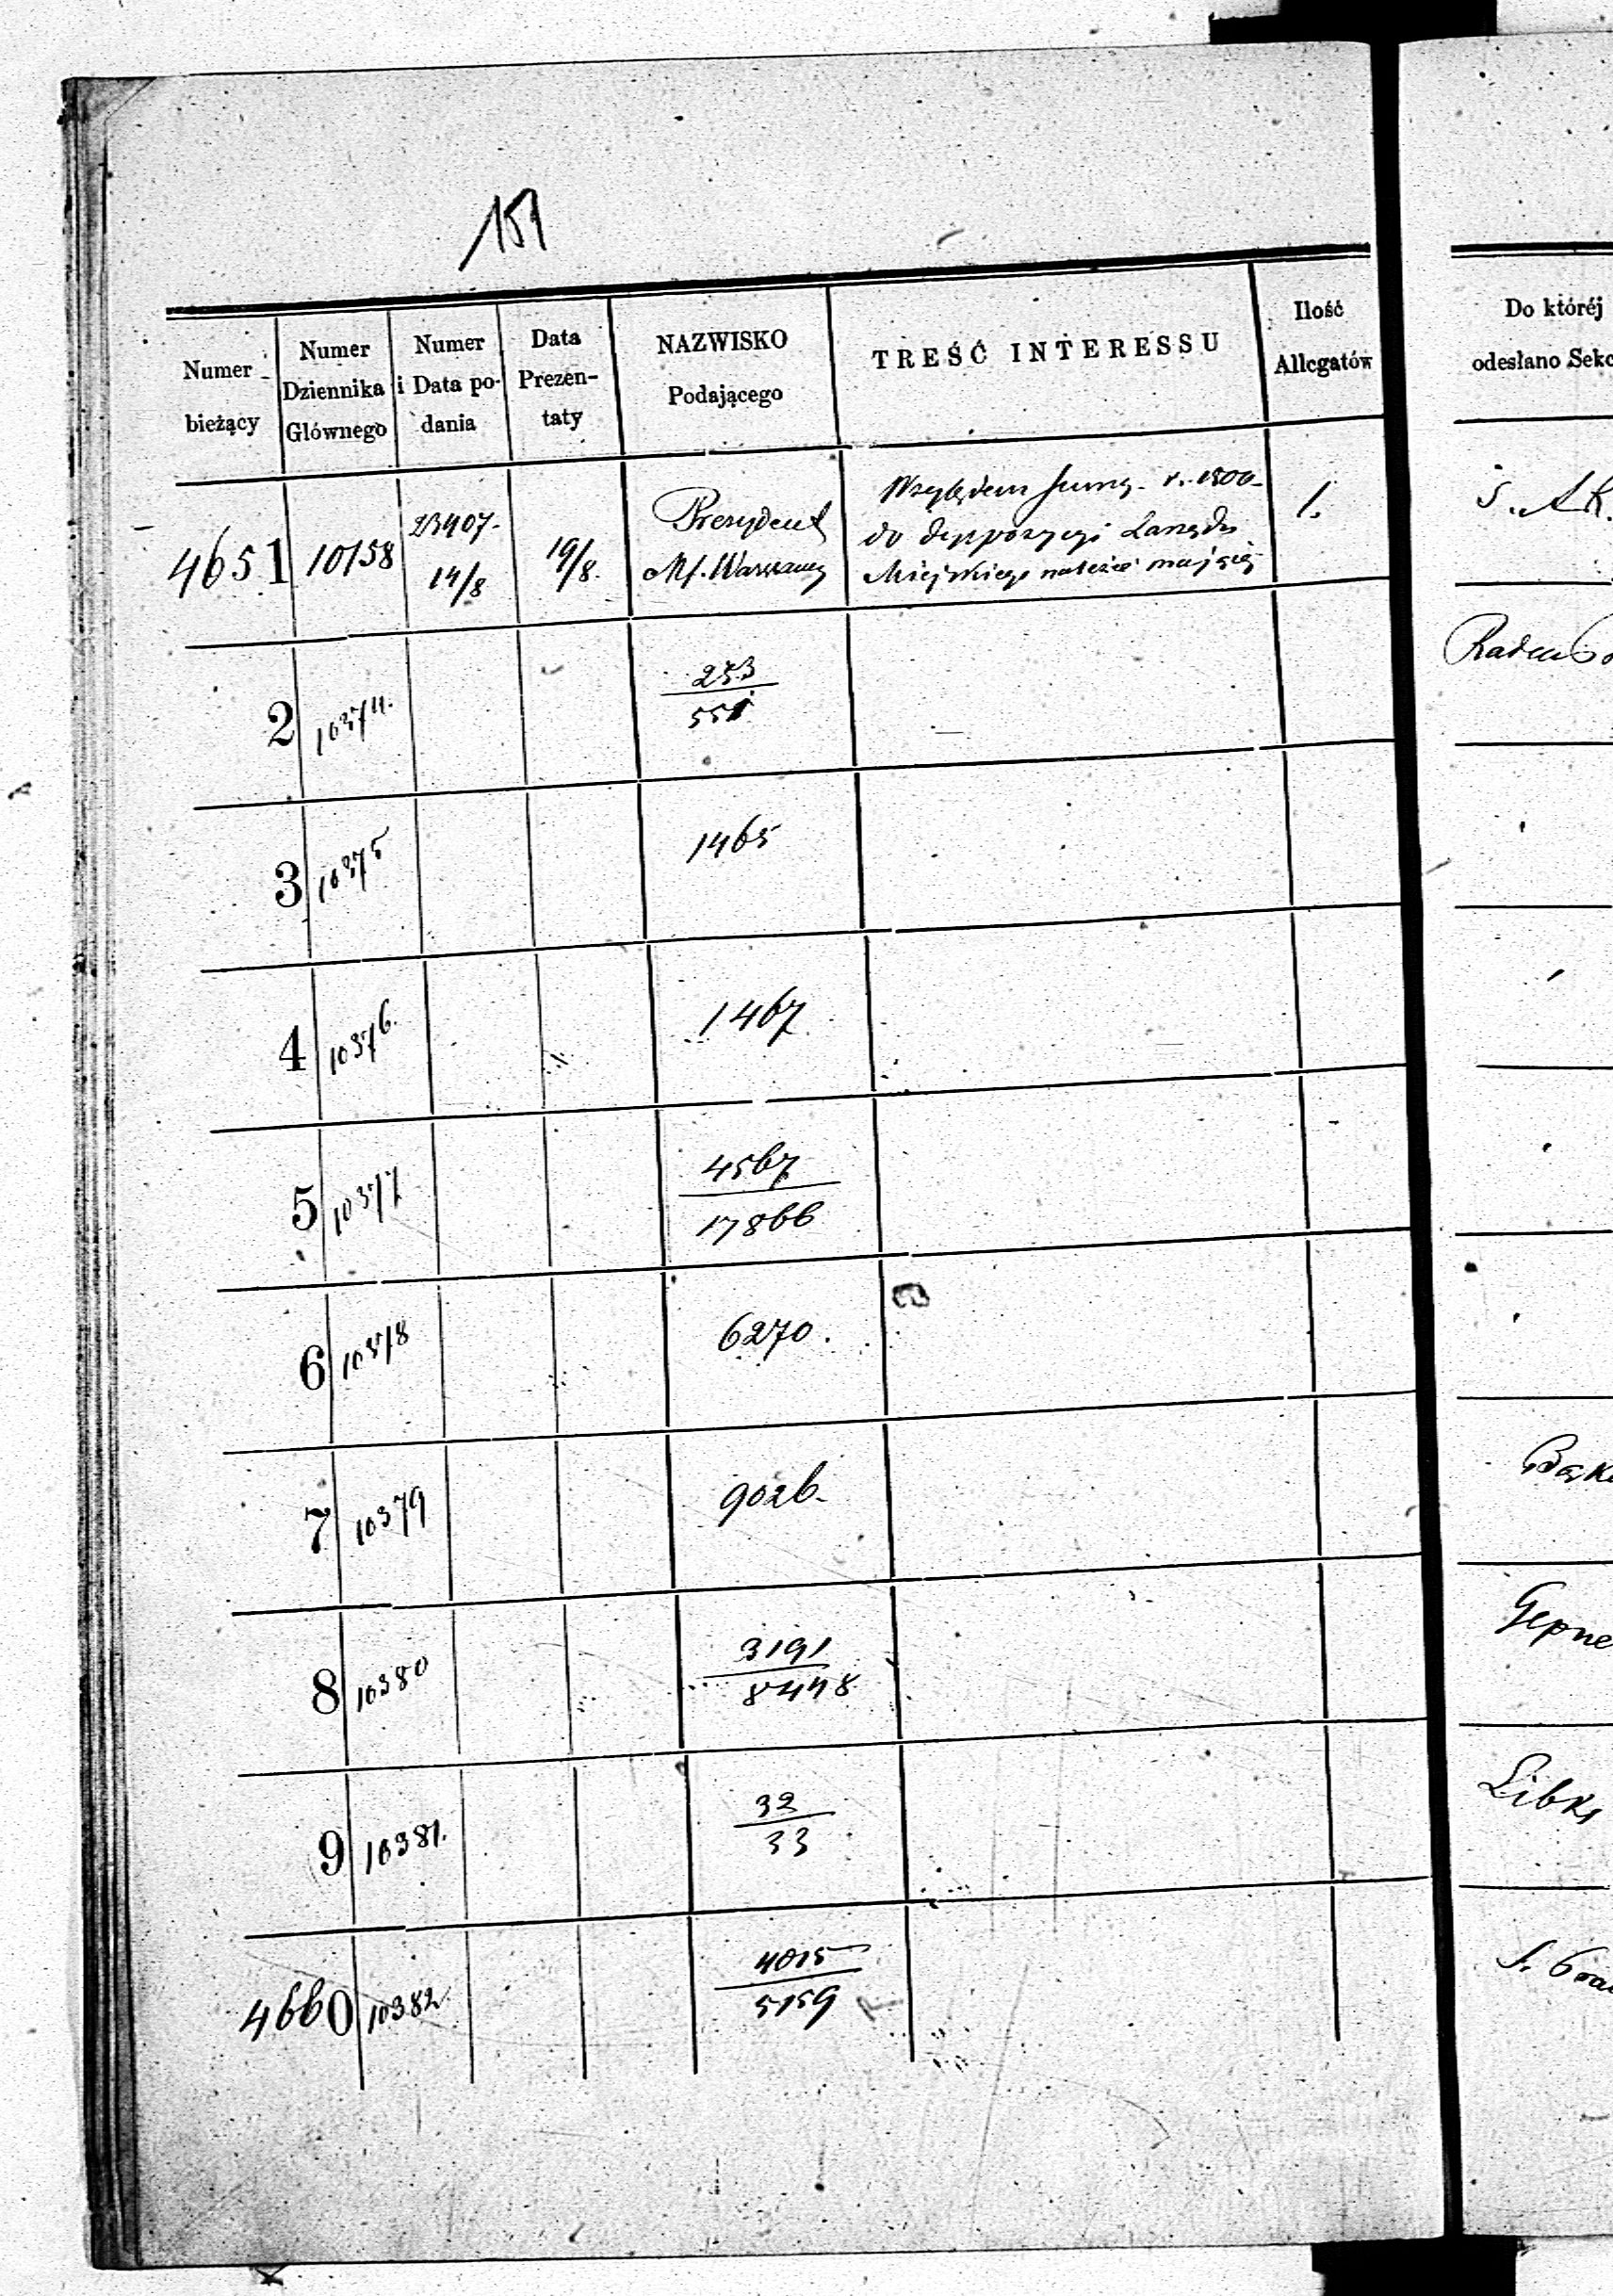 151
Numer bieżący
Numer Dziennika Głównego
Numer i Data podania
Data Prezentaty
NAZWISKO Podającego
TREŚĆ INTERESSU
Ilość Allegatów
Do któréj
odesłano Sekc
4651 10158 23407. 14/8 19/8. Prezydent M. Warszawy
Względem summy r. 1800
do depozycyi Zarządu
Miejskiego należeć mającej
1.
2 10374. 253/551
3 10375 1465
4 10376. 1467
5 10377 4567/17866
6 10378 6270.
7 10379 9026.
8 10380 3191/8448
9 10381. 32/33
4660 10382. 4015/5159
Gepne